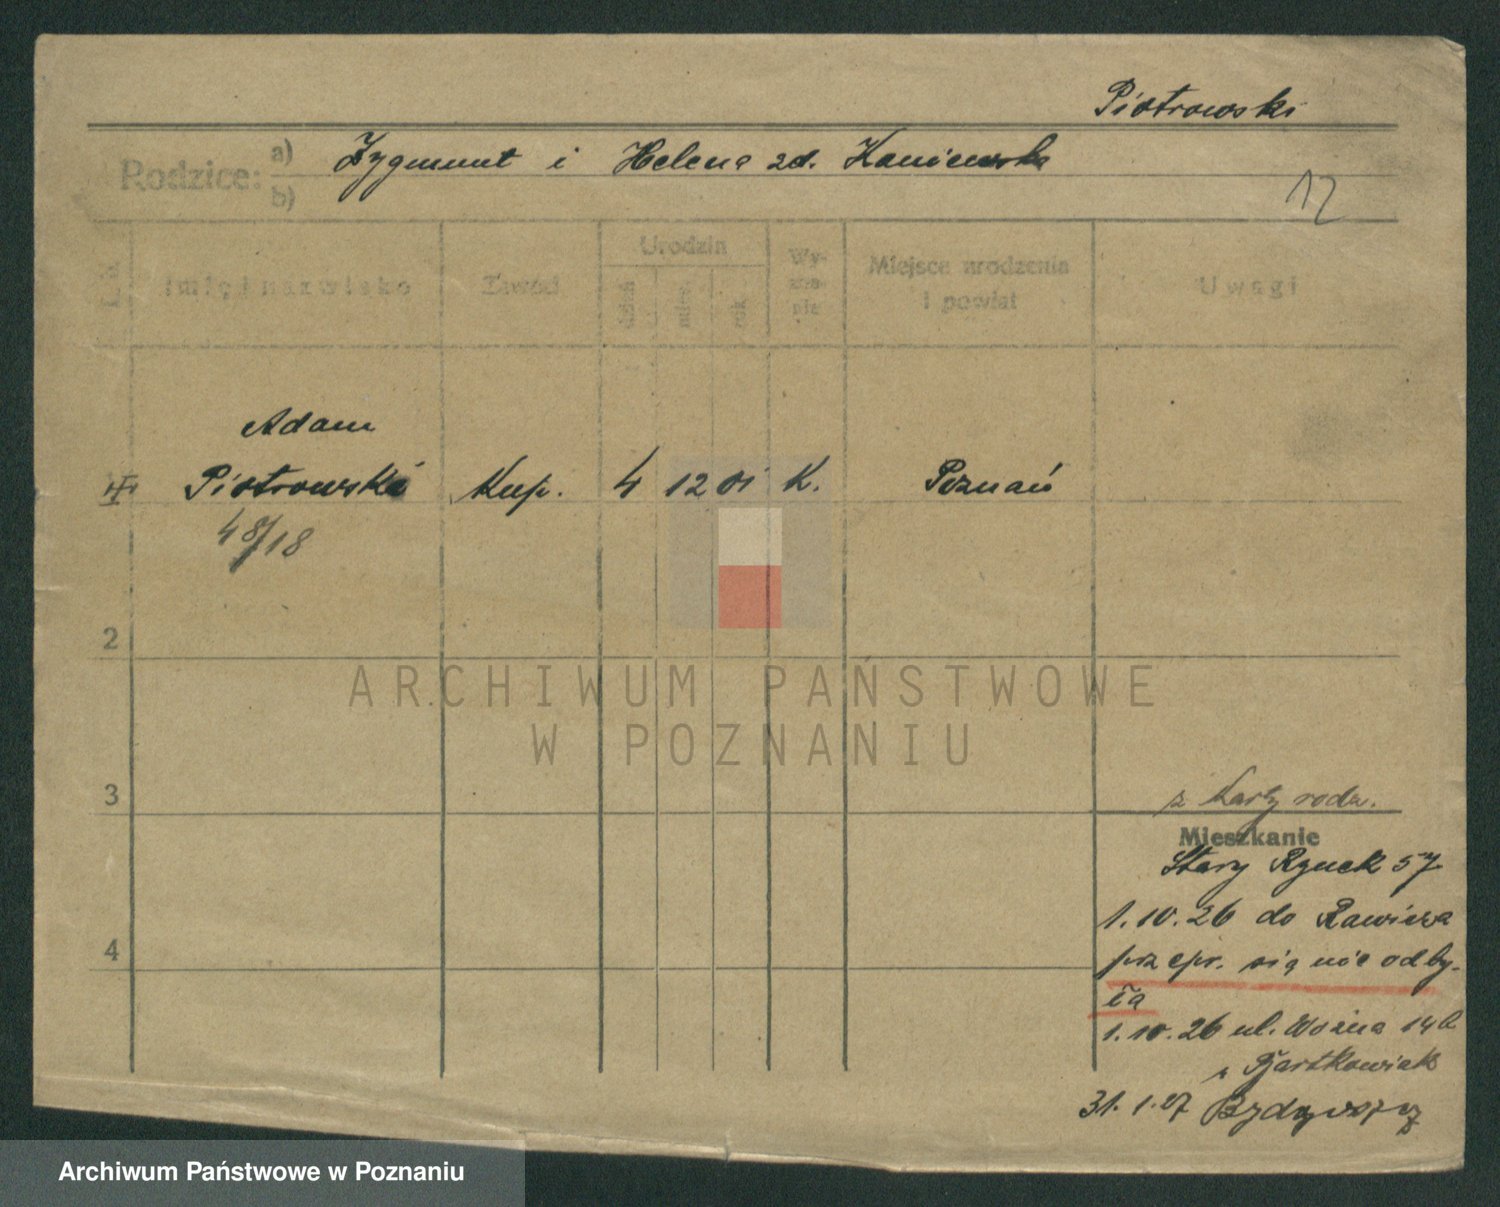 Piotrowski
Rodzice: a) Zygmunt i Helena zd. Kaniewska
b)
12
Imię i nazwisko
Zawód
Urodzin
dzień
mies.
rok
Wy-
zna-
nie
Miejsce urodzenia
i powiat
Uwagi
Adam
Piotrowski Kup. 4 12 01 K. Poznań
48/18
2
ARCHIWUM PAŃSTWOWE
W POZNANIU
3
z karty rodz.
Mieszkanie
Stary Rynek 57
1.10.26 do Rawicza
przepr. się nie odby-
ła
4
1.10.26 ul. Woźna 14b
Bartkowiak
31.1.27 Bydgoszcz
Archiwum Państwowe w Poznaniu